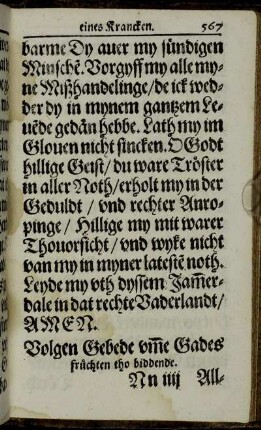 eines Krancken. 567
barme Dy auer my sündigen
Minschē. Vorgyff my alle my-
ne Mißhandelinge/de ick wed-
der dy in mynem gantzem Le-
uēde gedān hebbe. Lath my im
Glouen nicht sincken. O Godt
hillige Geist/du ware Tröster
in aller Noth/erholt my in der
Geduldt / vnd rechter Anro-
pinge/ Hillige my mit warer
Thouorsicht/vnd wyke nicht
van my in myner latestē noth.
Leyde my vth dyssem Jam̄er-
dale in dat rechte Vaderlandt/
AMEN.
Volgen Gebede vm̄e Gades
früchten tho biddende.
Nn iiij All-